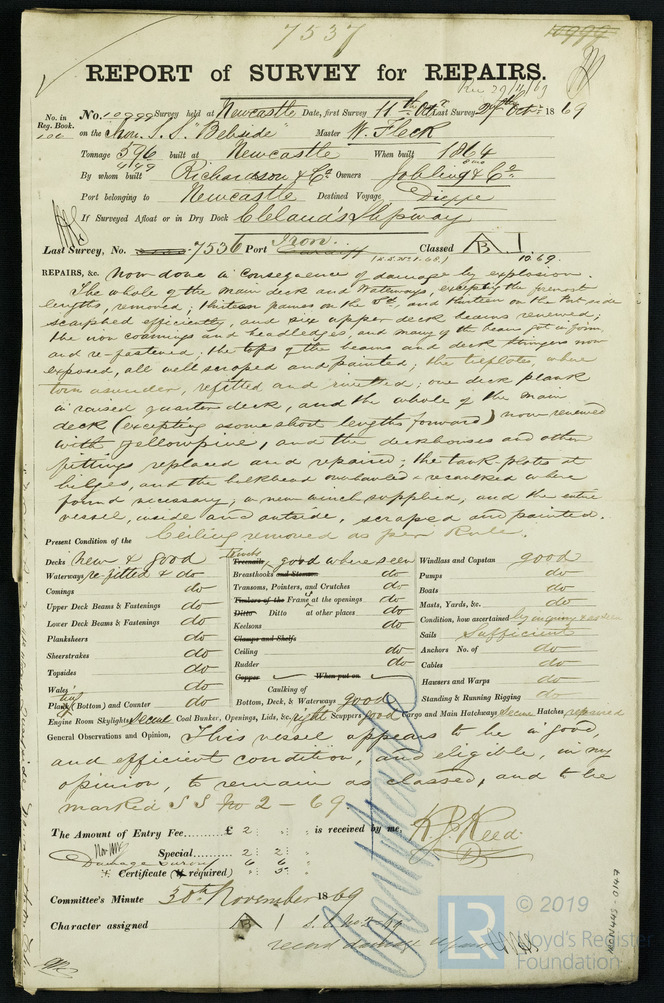 7537
REPORT of SURVEY for REPAIRS.
Rec 29/11/69
No. in Reg. Book.
No. 10999 Survey held at Newcastle Date, first Survey 11th Octr Last Survey 27th Octr 1869
on the Iron S.S. "Bebside" Master W. Fleck
Tonnage 596 built at Newcastle When built 1864
By whom built Richardson & Co Owners Jobling & Co
Port belonging to Newcastle Destined Voyage Dieppe
If Surveyed Afloat or in Dry Dock Cleland's Slipway
Last Survey, No. 7536 Port Iron Classed A B 1
10.69.
REPAIRS, &c. now done in consequence of damage by explosion.
The whole of the main deck and waterways, excepting the foremost
lengths, removed; thirteen frames on the and thirteen on the Port side
scarphed efficiently, and six upper deck beams renewed;
the iron coamings and headledges, and many of the beams got in form
and re-fastened; the tops of the beams and deck stringers now
exposed, all well scraped and painted; the tieplates, where
torn asunder, refitted and rivetted; one deck plank
in raised quarter deck, and the whole of the main
deck (excepting some short lengths forward) now renewed
with yellow pine, and the deckhouses and other
fittings replaced and repaired; the tank-plates at
bilges, and the bulkhead overhauled & recaulked where
found necessary; a new winch supplied, and the entire
vessel, inside and outside, scraped and painted.
Ceiling removed as per Rule.
Present Condition of the
Decks new & good
Waterways refitted & do
Comings do
Upper Deck Beams & Fastenings do
Lower Deck Beams & Fastenings do
Planksheers do
Sheerstrakes do
Topsides do
Wales do
Plank (Bottom) and Counter do
Treenails good where seen
Breasthooks and Stems do
Transoms, Pointers, and Crutches do
Timbers of the Frame at the openings do
Ditto Ditto at other places do
Keelsons do
Clamps and Shelfs
Ceiling do
Rudder do
Copper When put on
Caulking of
Bottom, Deck, & Waterways good
Windlass and Capstan good
Pumps do
Boats do
Masts, Yards, &c. do
Condition, how ascertained by inquiry &
Sails Sufficient
Anchors No. of do
Cables do
Hawsers and Warps do
Standing & Running Rigging do
Engine Room Skylights Secure Coal Bunker, Openings, Lids, &c. right Scuppers good Cargo and Main Hatchways secure Hatches repaired
General Observations and Opinion, This vessel appears to be in good,
and efficient condition, and eligible, in my
opinion, to remain as classed, and to be
marked S S No 2 - 69
The Amount of Entry Fee......... £ 2 is received by me, K. J. Reed
Special......... 2 2
Damage Survey 6 6
Certificate (if required) 5
Committee's Minute 30th November 1869
Character assigned A B 1 S.S. No 2-69
record damage
LR
© 2019
Lloyd's Register
Foundation